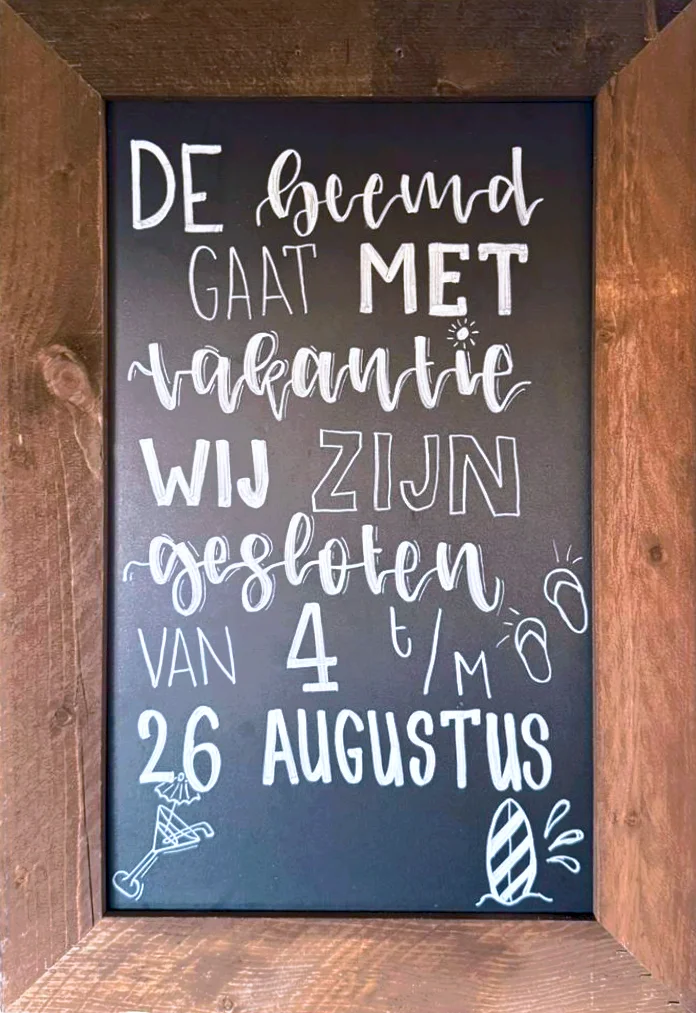 DE beemd
GAAT MET
vakantie
WIJ ZIJN
gesloten
VAN 4 t/M
26 AUGUSTUS